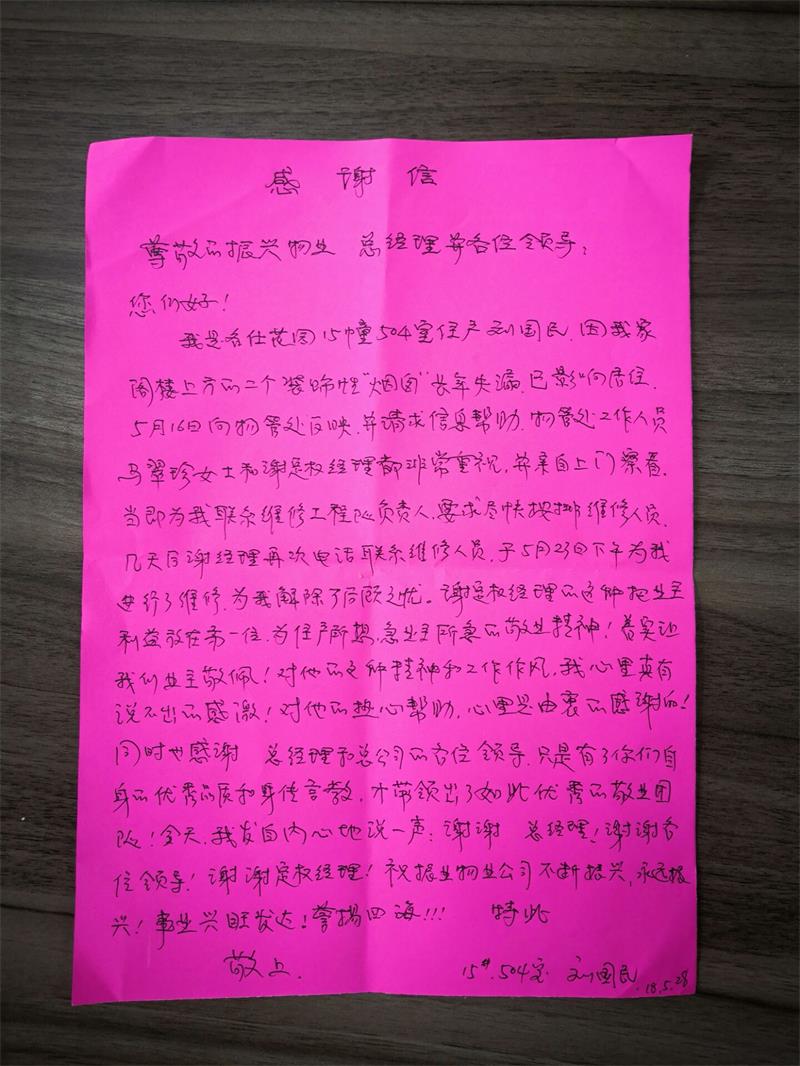 感谢信
尊敬的振兴物业 总经理并各位领导：
您们好！
我是名仕花园15幢504室住户刘国民，因我家
阁楼上方的二个装饰性“烟囱”长年失漏，已影响居住，
5月16日向物管处反映，并请求信息帮助，物管处工作人员
马翠珍女士和谢定权经理都非常重视，并亲自上门察看，
当即为我联系维修工程队负责人，要求尽快按排维修人员，
几天后谢经理再次电话联系维修人员，于5月23日下午为我
进行了维修，为我解除了后顾之忧。谢定权经理的这种把业主
利益放在第一位，为住户所想，急业主所急的敬业精神！着实让
我们业主敬佩！对他的这种精神和工作作风，我心里真有
说不出的感激！对他的热心帮助，心里是由衷的感谢的！
同时也感谢 总经理和总公司的各位领导，只是有了你们自
身的优秀品质和身传言教，才带领出了如此优秀的敬业团
队！今天，我发自内心地说一声：谢谢 总经理！谢谢各
位领导！谢谢定权经理！祝振兴物业公司不断振兴，永远振
兴！事业兴旺发达！誉扬四海！！！ 特此
敬上.
15#.504室 刘国民
18.5.28